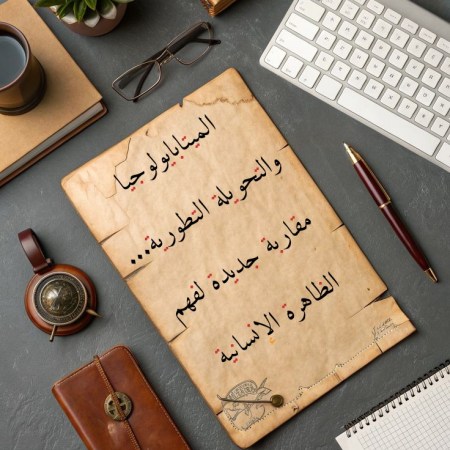 الميتابايولوجيا
والتحويلة التطورية...
مقاربة جديدة لفهم
الظاهرة الانسانية